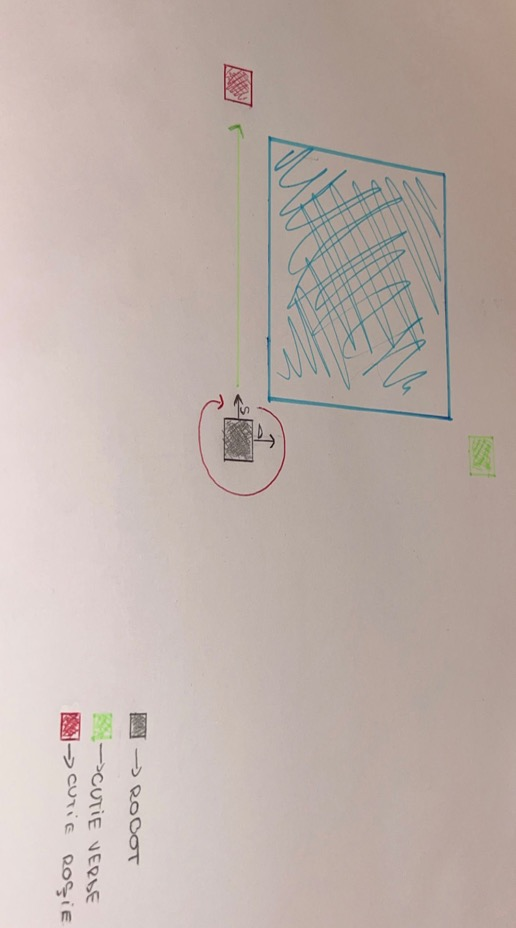 S
D
→ ROBOT
→ CUTIE VERDE
→ CUTIE ROȘIE